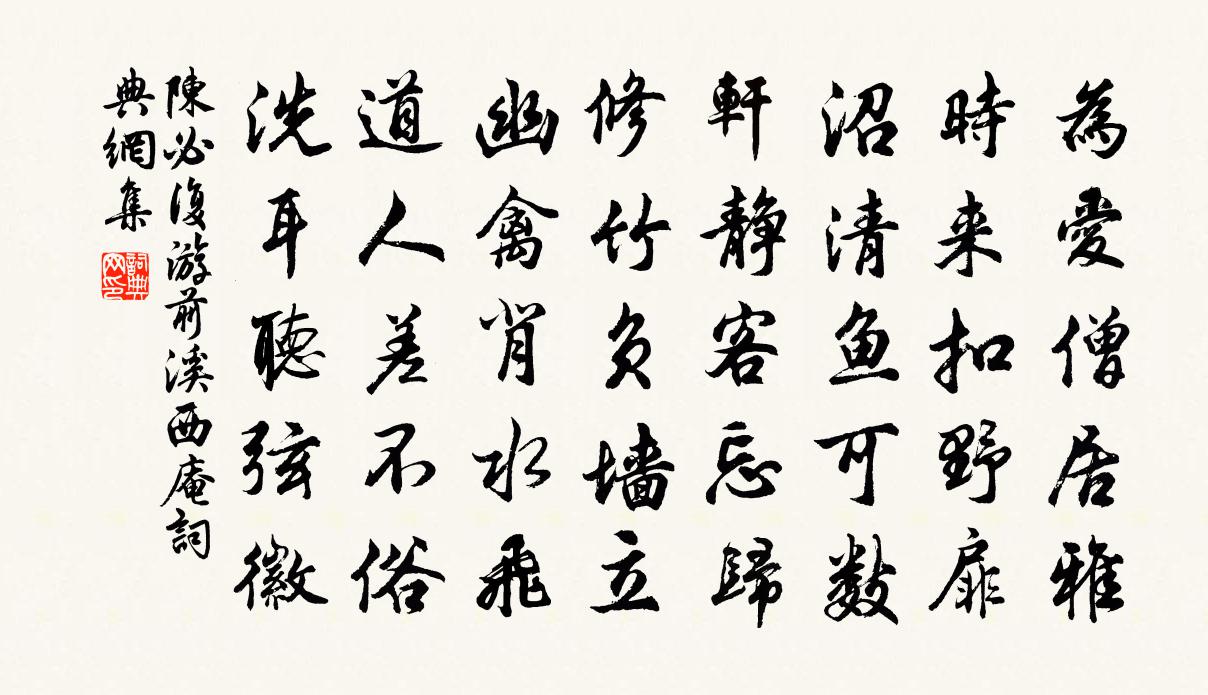 為愛僧居雅
時来扣野扉
沼清魚可數
軒靜客忘歸
修竹負墙立
幽禽背水飛
道人差不俗
洗耳聽弦徽
陳必復游前溪西庵詞
典網集
詞典网印